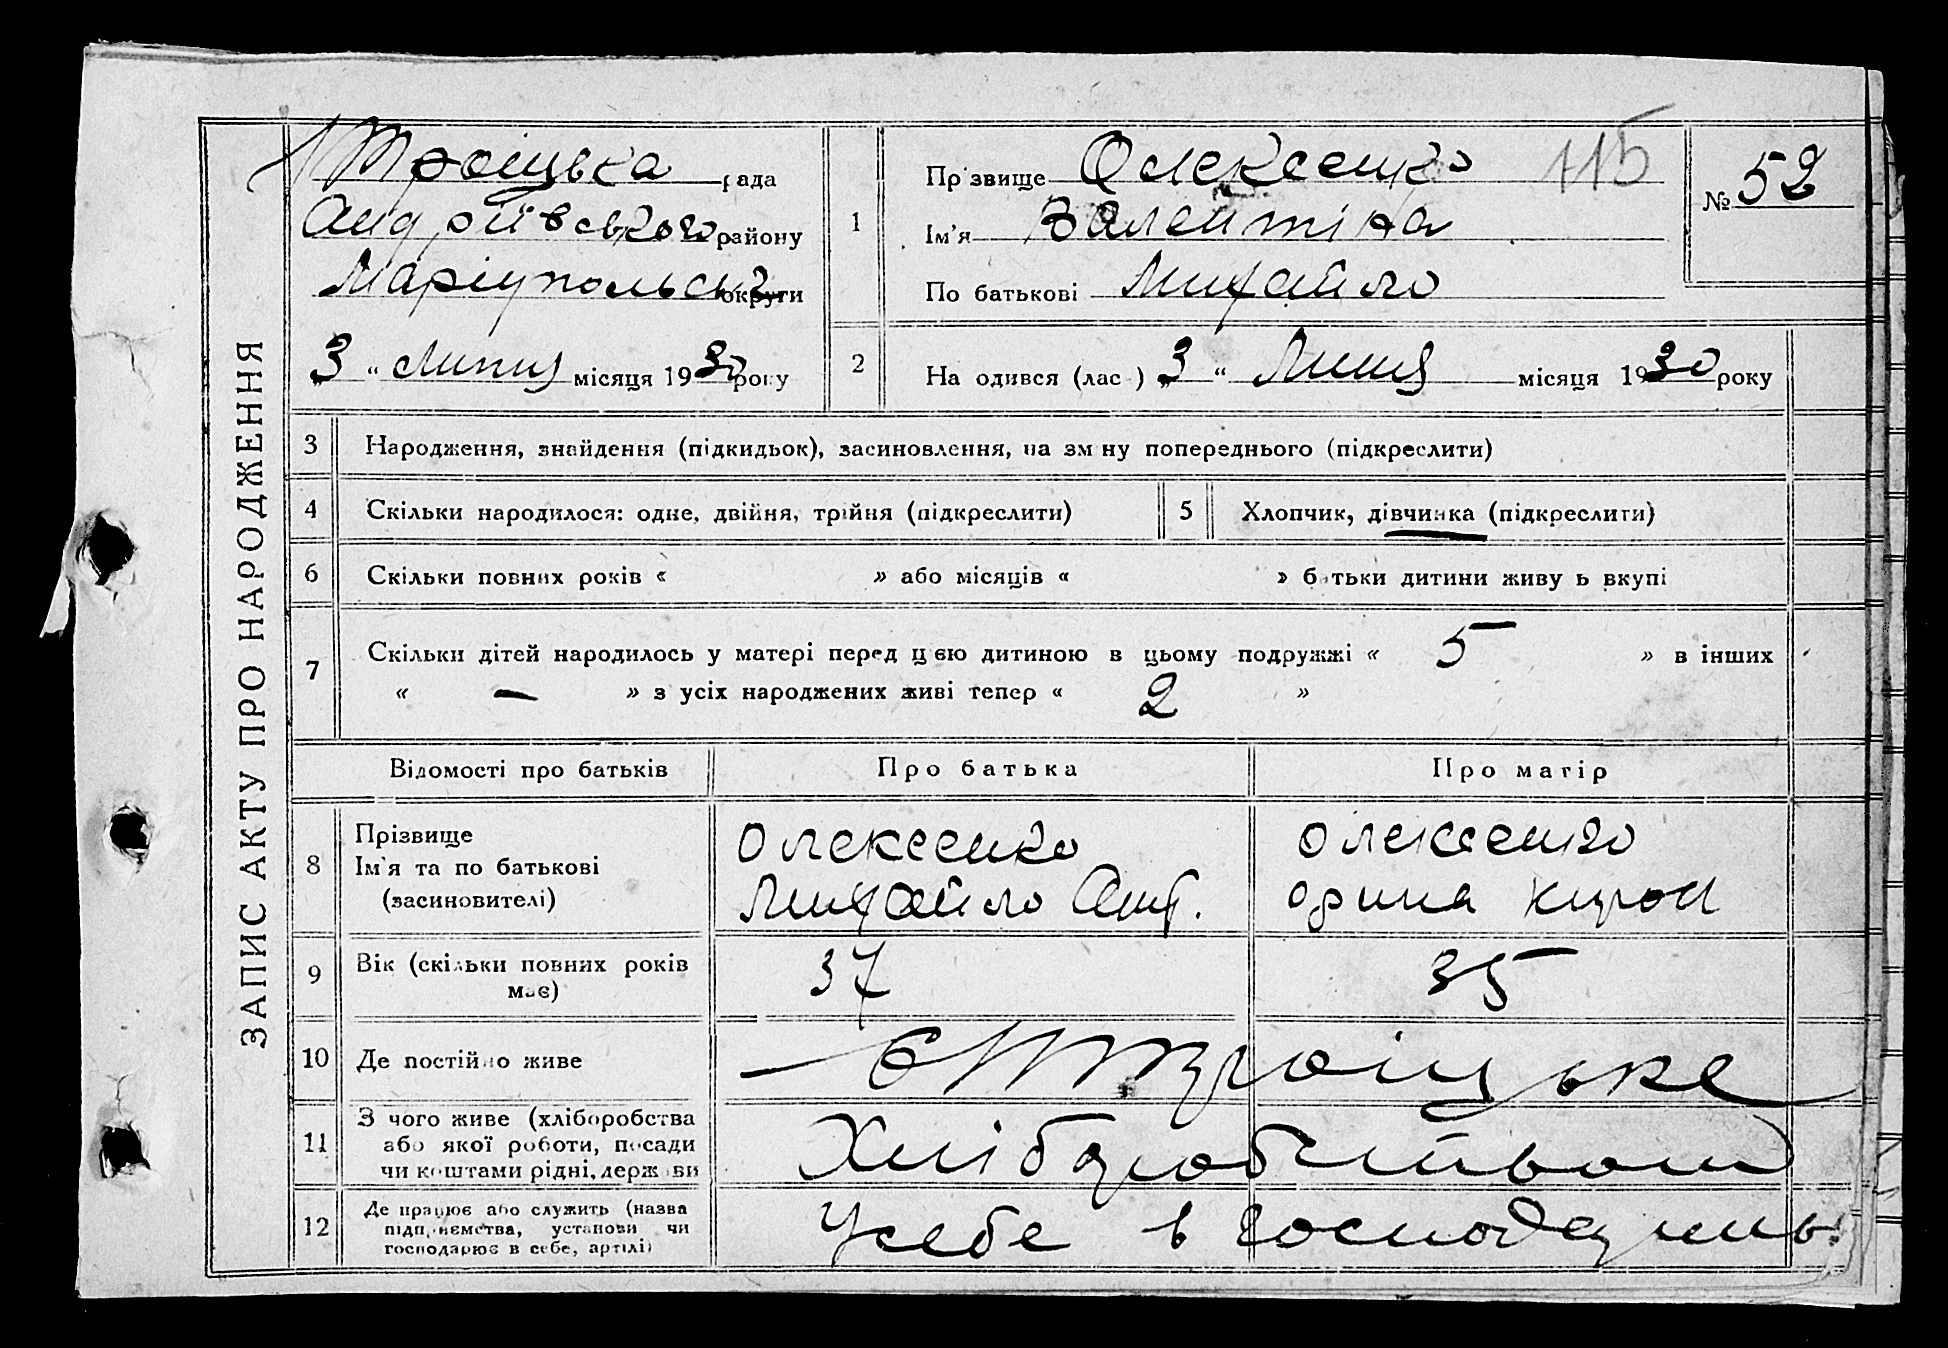 ЗАПИС АКТУ ПРО НАРОДЖЕННЯ
Троіцька рада
Андріівського району
Маріупольськ округи
3 " Липня місяця 1930 року
115
№ 52
1
Прізвище Олексеенко
Ім'я Валентіна
По батькові Михайло
2
На одився (лас ) „ 3 " Липня місяця 1930 року
3 Народження, знайдення (підкидьок), засиновлення, на зм ну попереднього (підкреслити)
4 Скільки народилося: одне, двійня, трійня (підкреслити)
5 Хлопчик, дівчинка (підкреслити)
6 Скільки повних років « » або місяців « » батьки дитини живу ь вкупі
7 Скільки дітей народилось у матері перед цією дитиною в цьому подружжі « 5 » в інших
« — » з усіх народжених живі тепер « 2 »
Відомості про батьків Про батька Про матір
8 Прізвище
Ім'я та по батькові
(засновителі)
Олексеенко
Михайло Ант.
Олексеенко
Орина Кирон
9 Вік (скільки повних років
має)
37
35
10 Де постійно живе
с Троіцьке
11 З чого живе (хліборобства
або якої роботи, посади
чи коштами рідні, держ ви
Хліборобством
12 Де працює або служить (назва
підприємства, установи чи
господарює в себе, артілі)
У себе в господарстві